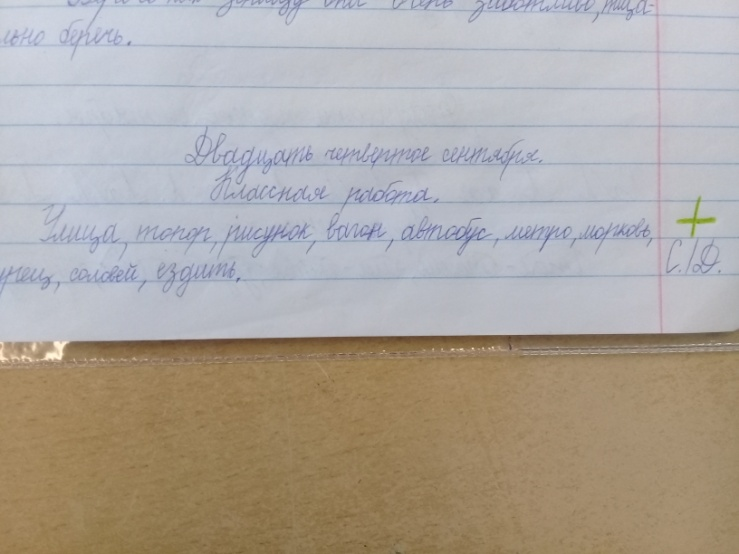 очень заботливо, тща-
льно беречь.
Двадцать четвертое сентября.
Классная работа.
Улица, топор, рисунок, вагон, автобус, метро, морковь,
урец, соловей, ездить.
+
С./D.